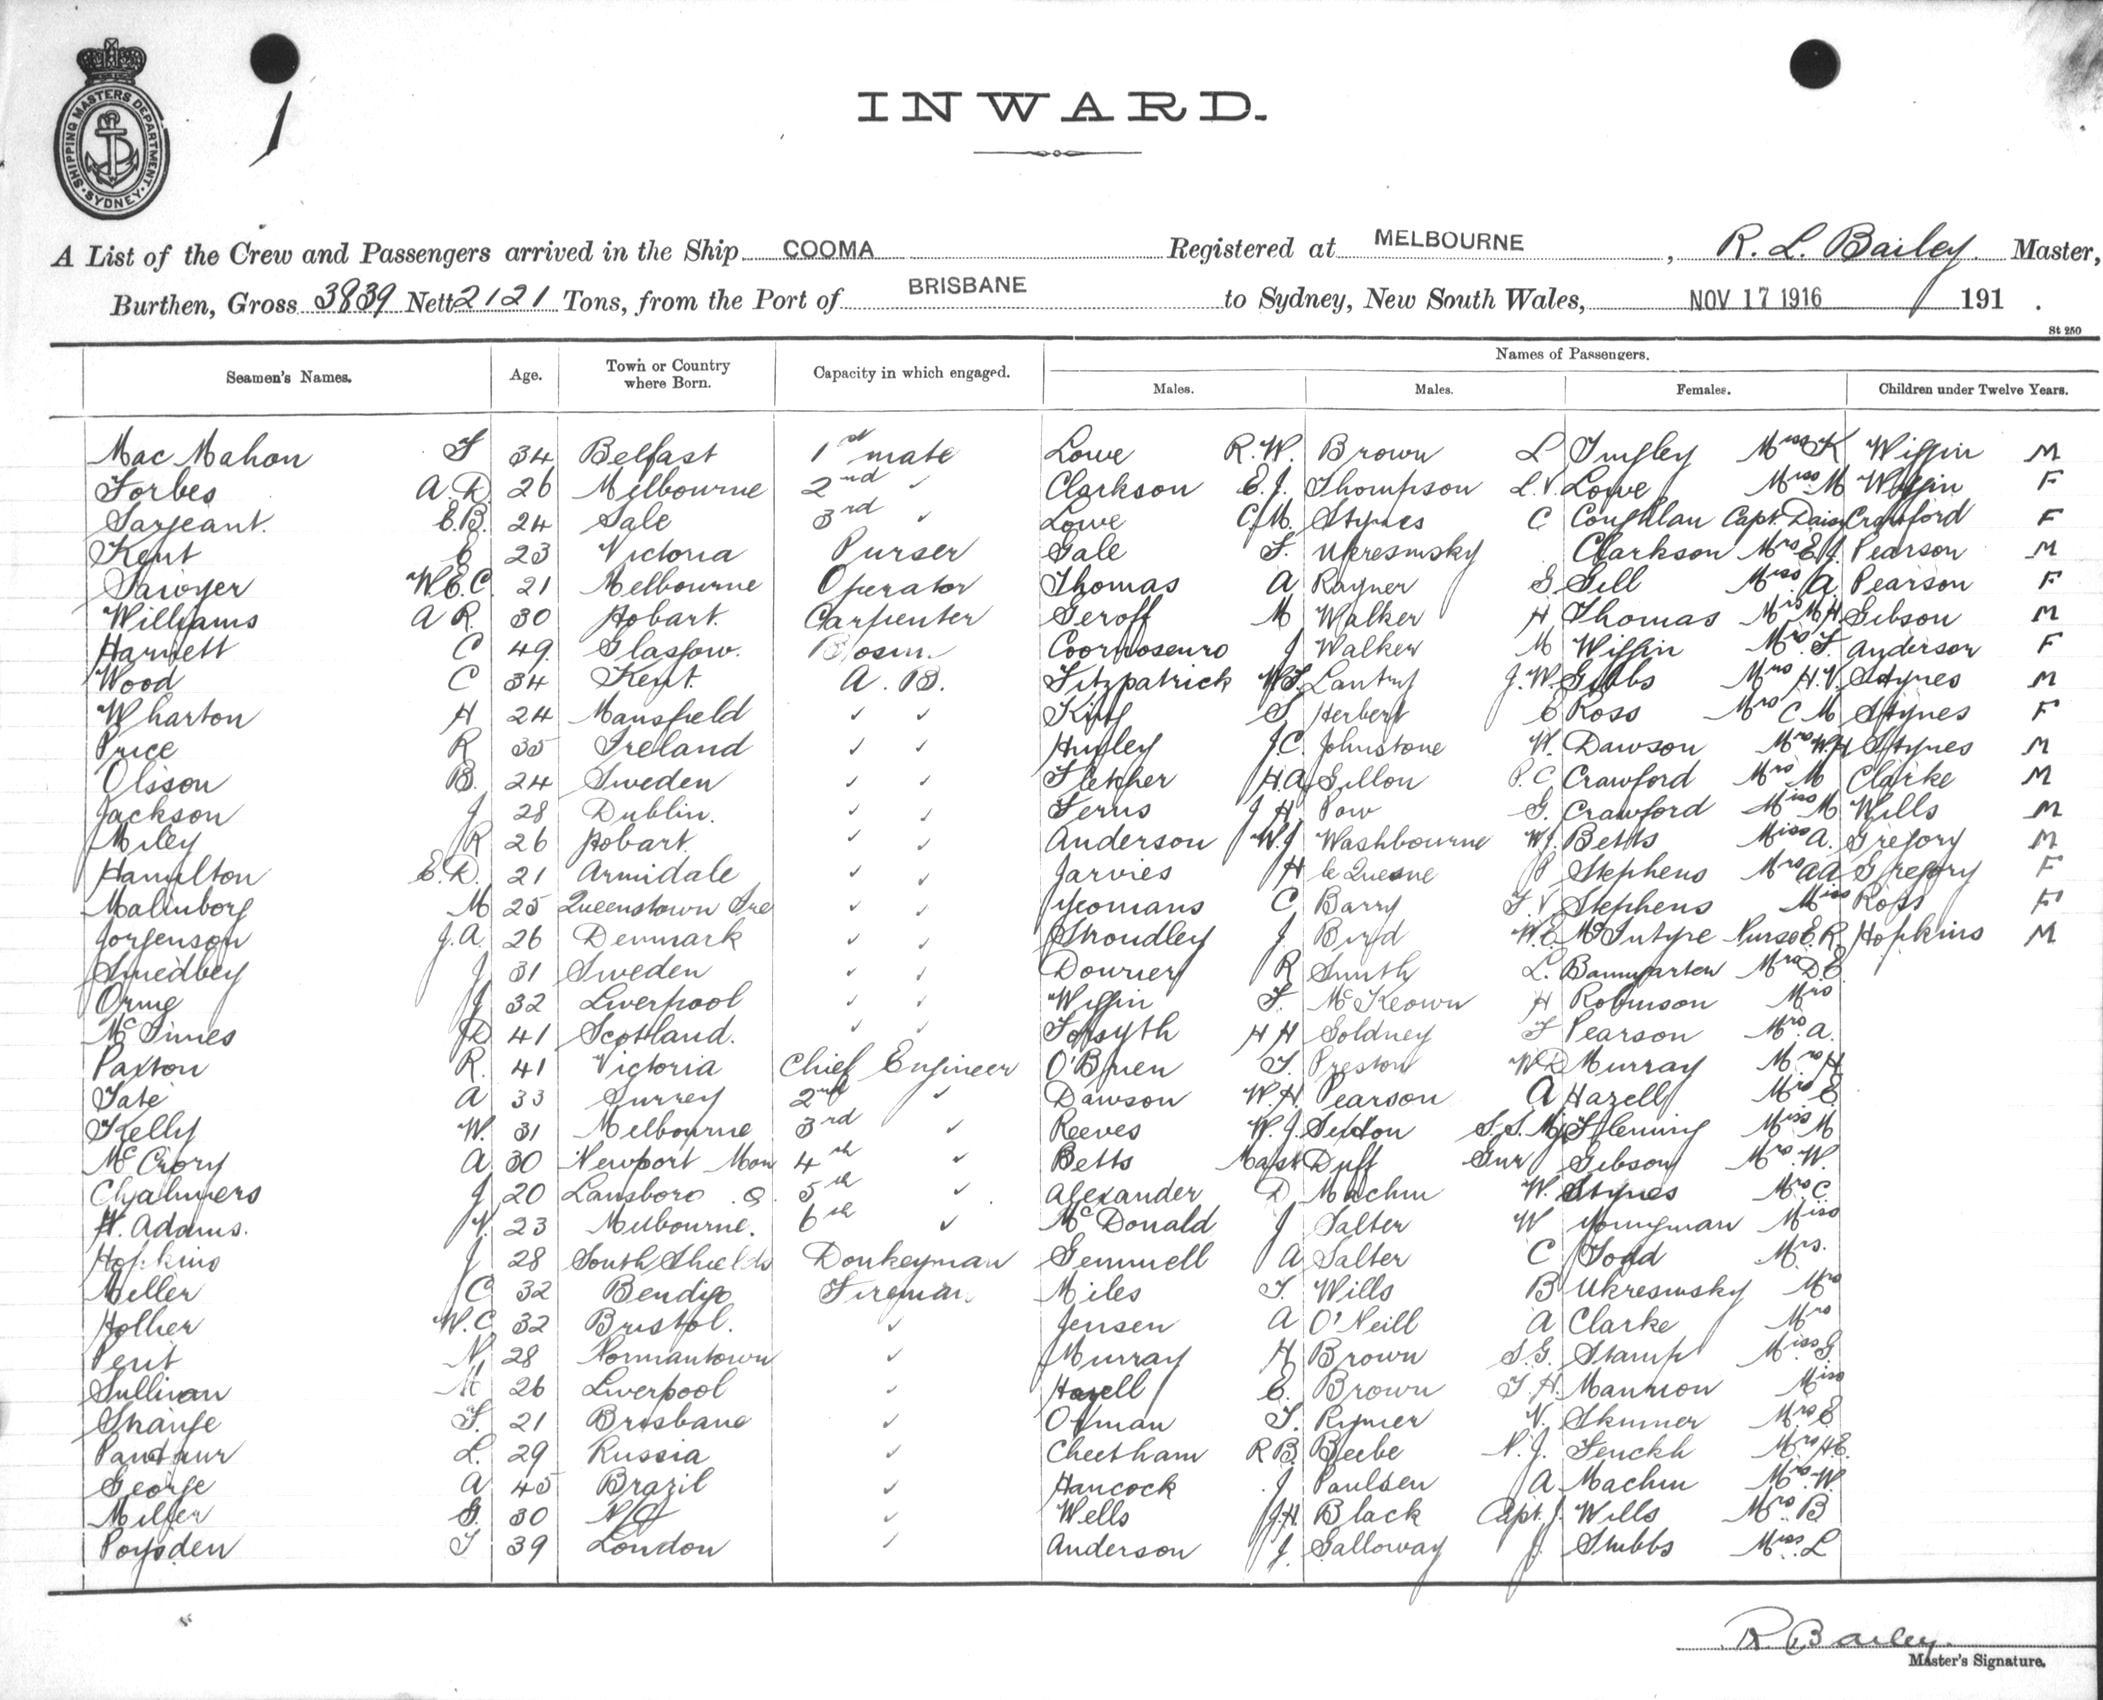 SHIPPING MASTERS DEPARTMENT. SYDNEY
1
INWARD.
A List of the Crew and Passengers arrived in the Ship COOMA Registered at MELBOURNE, R. L. Bailey Master,
Burthen, Gross 3839 Nett 2121 Tons, from the Port of BRISBANE to Sydney, New South Wales, NOV 17 1916 191 .
St 250
Seamen's Names. Age. Town or Country where Born. Capacity in which engaged. Names of Passengers.
Males. Males. Females. Children under Twelve Years.
Mac Mahon 34 Belfast 1st mate Lowe R.W. Brown L Miss K Wiffin M
Forbes A.D. 26 Melbourne 2nd " Clarkson E.J. Thompson L.V. Lowe Miss M Wiffin F
Sargeant. E.B. 24 Sale 3rd " Lowe C.M. Stynes C Coughlan Capt. Daisy Crawford F
Kent E 23 Victoria Purser Gale F. Ukresmsky Clarkson Mrs E J Pearson M
Sawyer W.E.C. 21 Melbourne Operator Thomas A Rayner G Gill Miss A Pearson F
Williams A R. 30 Hobart. Carpenter Geroff M Walker H Thomas Mrs M H Gibson M
Harnett C 49 Glasgow. Bosun J Walker M Wiffin Mrs F. Anderson F
Wood C 34 Kent. A. B. Fitzpatrick W.F. Lantry J.W. Gibbs Mrs H.V. Stynes M
Wharton H 24 Mansfield " " King S. Herbert E Ross Mrs C M Stynes F
Price R 35 Ireland " " Hugley J.C. Johnstone W. Dawson Mrs W.H Stynes M
Olsson B. 24 Sweden " " Fletcher H.A. Gillon P.C Crawford Mrs M Clarke M
Jackson J 28 Dublin. " " Ferns J H. Pow G. Crawford Miss M Wills M
Miley R 26 Hobart " " Anderson W.J Washbourne W.J. Betts Miss A. Gregory M
Hamilton E.D. 21 Armidale " " Jarvies H le Quesne P Stephens Mrs A A Gregory F
Malmborg M 25 Queenstown Ire " " Yeomans C Barry F.V Stephens Miss Ross F
Jorgenson J.A. 26 Denmark " " Stroudley J Bird W.E McIntyre Nurse E.R. Hopkins M
Smedbey J 31 Sweden " " R Smith L. Baumgarten Mrs D E
Orme J 32 Liverpool " " Wiffin F. McKeown H Robinson Mrs
McInnes D 41 Scotland. " " Forsyth H H Goldney F Pearson Mrs A.
Paxton R. 41 Victoria Chief Engineer O'Brien T. Preston W D Murray Mrs H
Tate A 33 Surrey 2nd " Dawson W.H. Pearson A Hazell Mrs E.
Kelly W. 31 Melbourne 3rd " Reeves W.J. Sexton S.S.M. Fleming Miss M
McCrory A 30 Newport Mon 4th " Betts Mast Duff Gnr Gibson Mrs. W.
Chalmers J 20 Lansboro . Q. 5th " Alexander D Machin W. Stynes Mrs C.
W. Adams. N. 23 Melbourne. 6th " McDonald J Salter W Youngman Miss
Hopkins J 28 South Shields Donkeyman Gemmell A Salter C Todd Mrs.
Miller C 32 Bendigo Fireman Miles T. Wills B Ukresmsky Mrs
Hollier W.C 32 Bristol. " Jensen A O'Neill A Clarke Mrs
N 28 Normantown " Murray H Brown S.G. Stamp Miss G
Sullivan M 26 Liverpool " Hazell E. Brown T.H. Mannion Miss
Strange F. 21 Brisbane " Otman T. Rymer N. Skinner Mrs E.
L. 29 Russia " Cheetham R B. Beebe N.J. Mrs H E.
George A 45 Brazil " Hancock J Paulsen A Machin Mrs. W.
Milfer G. 30 " Wells J.H. Black Capt. J. Wills Mrs. B
Poysden T 39 London " Anderson J Galloway J Stubbs Miss L
R Bailey.
Master's Signature.